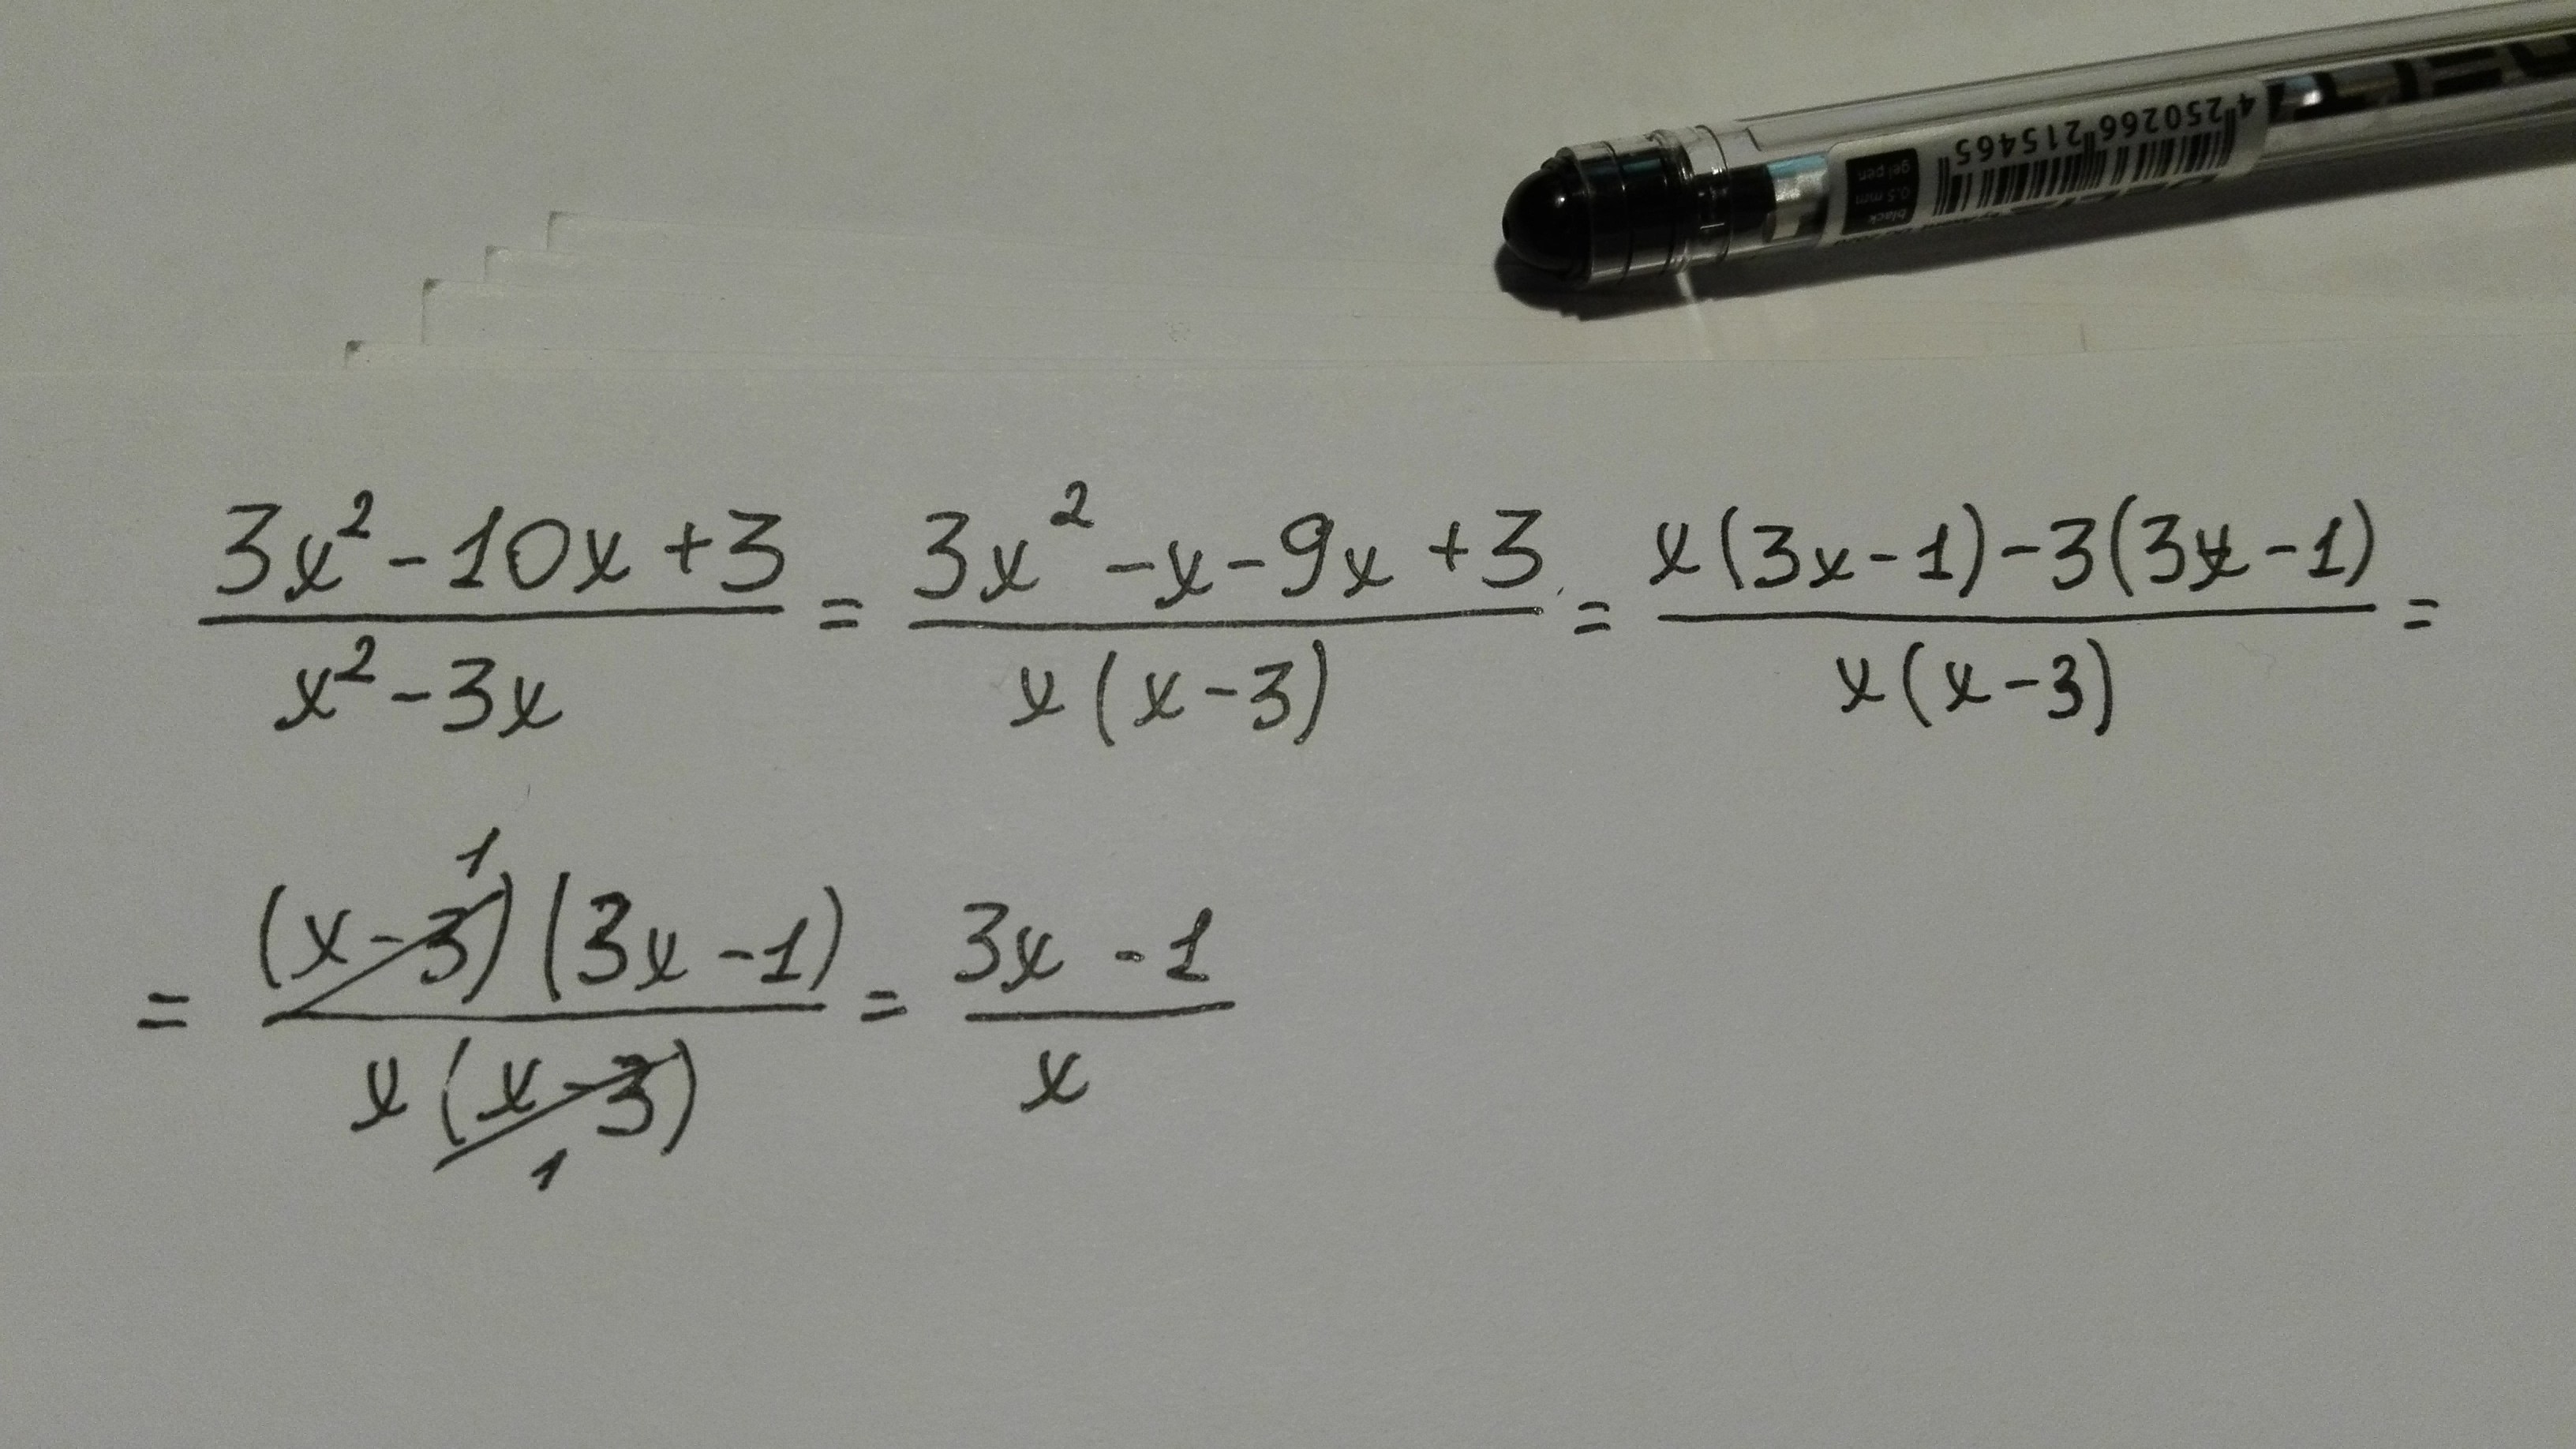 4 250266 215465
black
0.5 mm
gel pen
3x² - 10x + 3 / x² - 3x = 3x² - x - 9x + 3 / x(x - 3) = x(3x - 1) - 3(3x - 1) / x(x - 3) =
= (x - 3)¹ (3x - 1) / x(x - 3)₁ = 3x - 1 / x